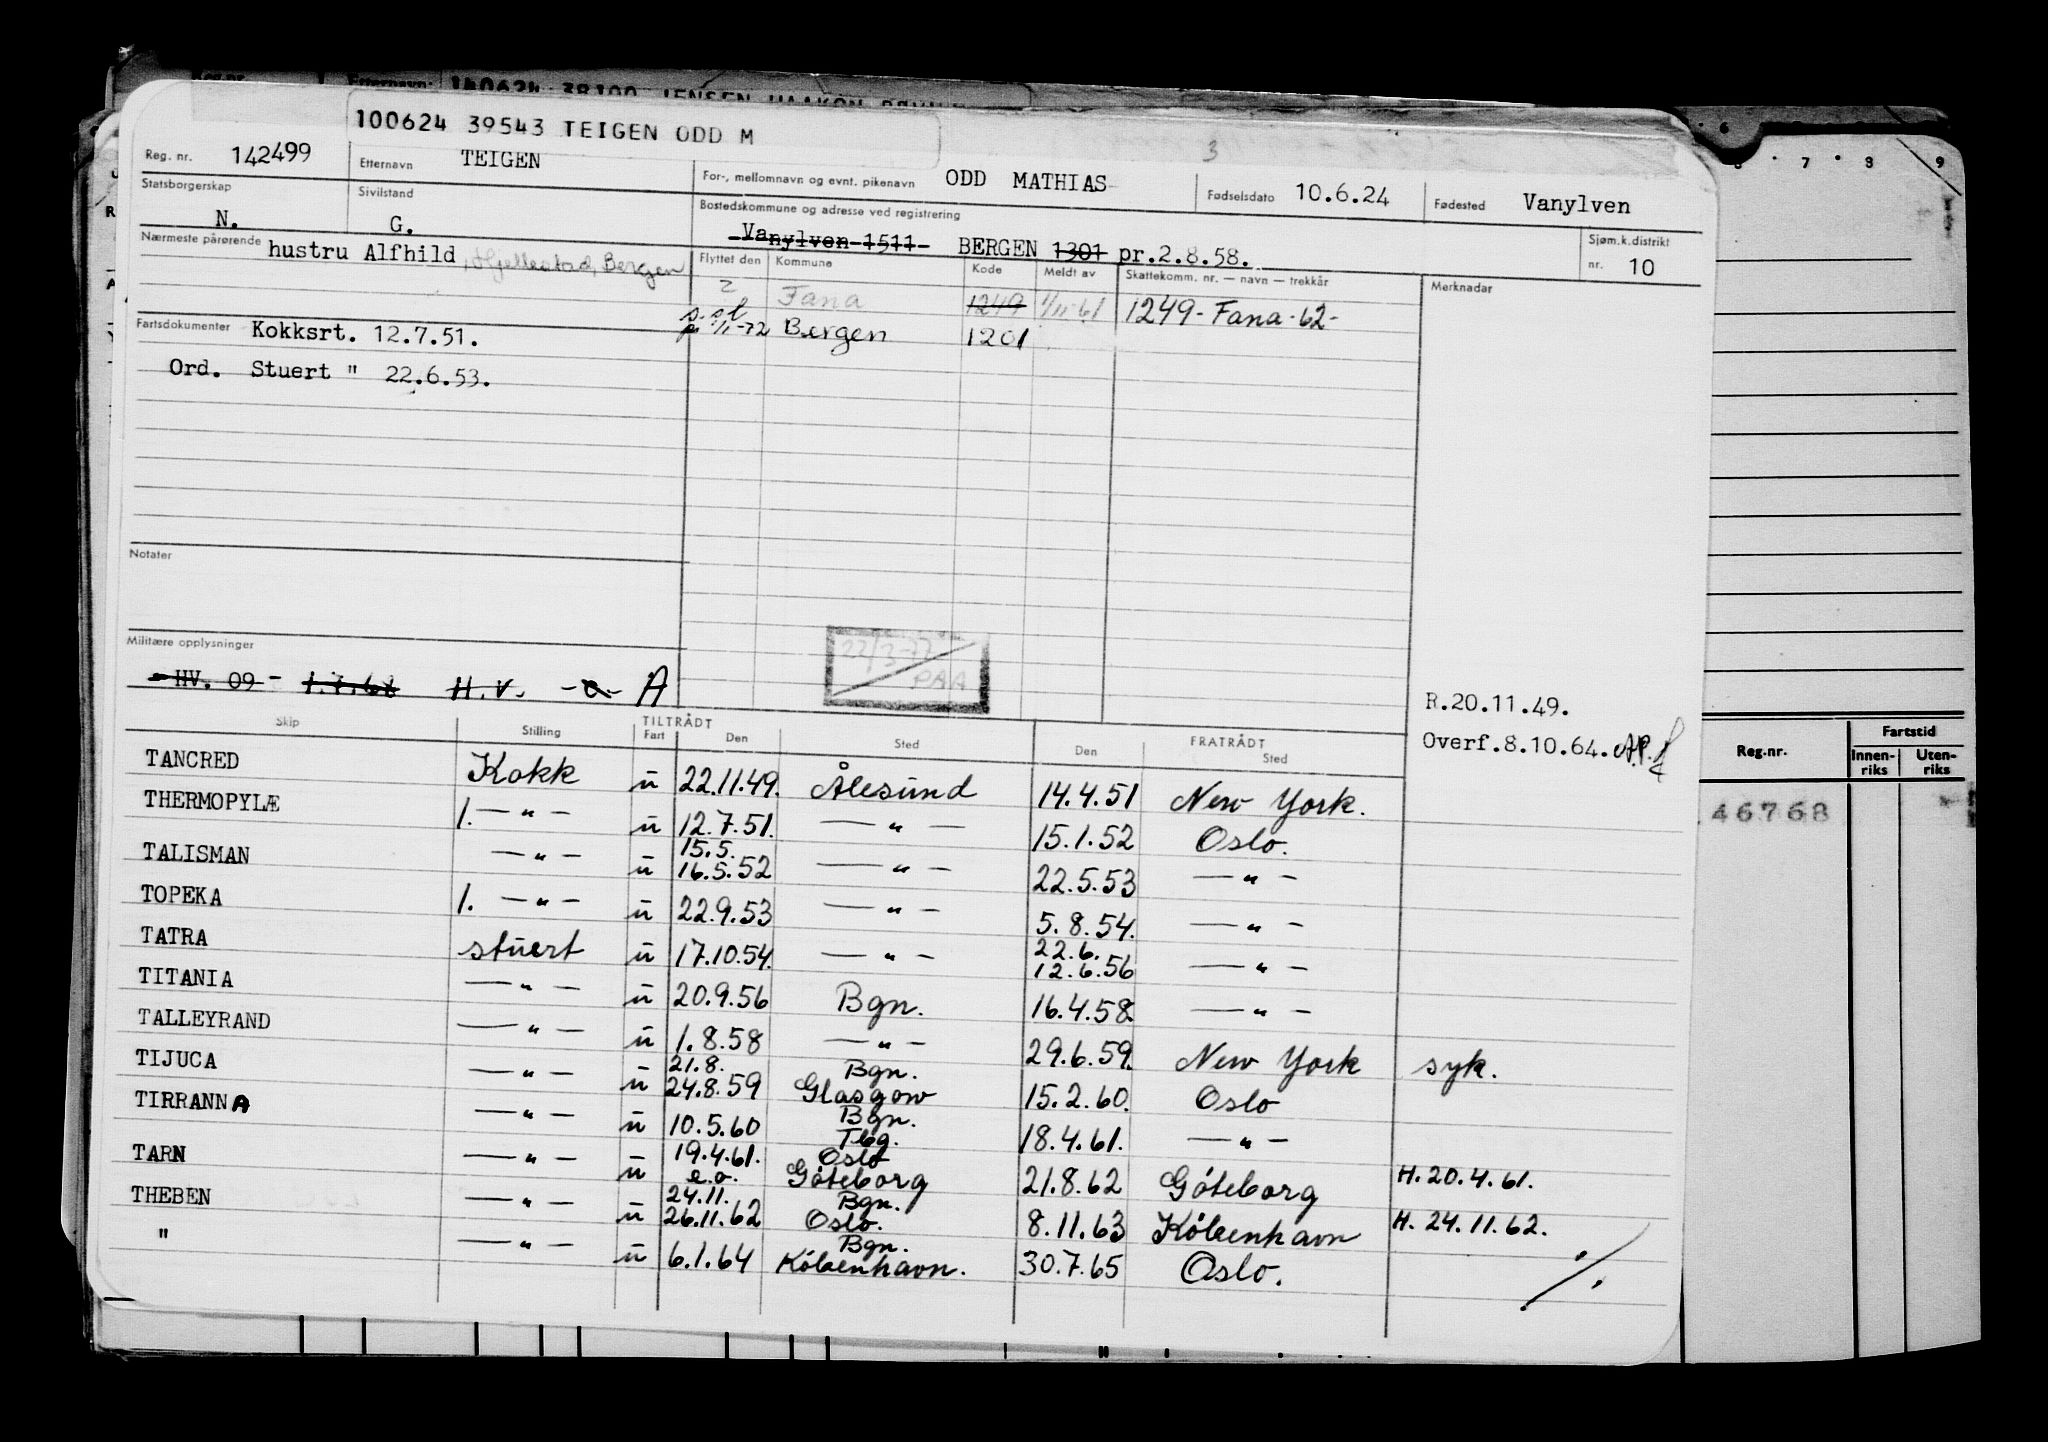 100624 38100 JENSEN HAAKON
100624 39543 TEIGEN ODD M
3
Reg. nr. 142499 Etternavn TEIGEN For-, mellomnavn og evnt. pikenavn ODD MATHIAS Fødselsdato 10.6.24 Fødested Vanylven
Statsborgerskap N. Sivilstand G. Bostedskommune og adresse ved registrering Vanylven 1511 BERGEN 1301 pr.2.8.58. Sjøm.k.distrikt nr. 10
Nærmeste pårørende hustru Alfhild, Hjellestad, Bergen
Flyttet den Kommune Kode Meldt av Skattekomm. nr. — navn — trekkår Merknadar
2 Fana 1249 1/11-61 1249-Fana-62-
s.sl
pr 1/1-72 Bergen 1201
Fartsdokumenter Kokksrt. 12.7.51.
Ord. Stuert " 22.6.53.
Notater
Militære opplysninger
HV. 09 - H.V. A
22/3-77
PAA
R.20.11.49.
Overf.8.10.64.
TILTRÅDT FRATRÅDT
Skip Stilling Fart Den Sted Den Sted
TANCRED Kokk u 22.11.49. Ålesund 14.4.51 New York.
THERMOPYLÆ 1. — " — u 12.7.51. — " — 15.1.52 Oslo.
15.5.
TALISMAN — " — u 16.5.52 — " — 22.5.53 — " —
TOPEKA 1. — " — u 22.9.53 — " — 5.8.54. — " —
22.6.
TATRA stuert u 17.10.54. — " — 12.6.56 — " —
TITANIA — " — u 20.9.56 Bgn. 16.4.58. — " —
TALLEYRAND — " — u 1.8.58 — " — 29.6.59. New York syk.
21.8. Bgn.
TIJUCA — " — u 24.8.59 Glasgow 15.2.60. Oslo
Bgn.
TIRRANNA — " — u 10.5.60 Tbg. 18.4.61. — " —
19.4.61. Oslo
TARN — " — u e.o. Göteborg 21.8.62 Göteborg H.20.4.61.
24.11. Bgn.
THEBEN — " — u 26.11.62 Oslo. 8.11.63 København H. 24.11.62.
Bgn.
" — " — u 6.1.64 København. 30.7.65 Oslo. ./.
6 7 8 9
Reg.nr. Fartstid
Innen-riks Uten-riks
46768